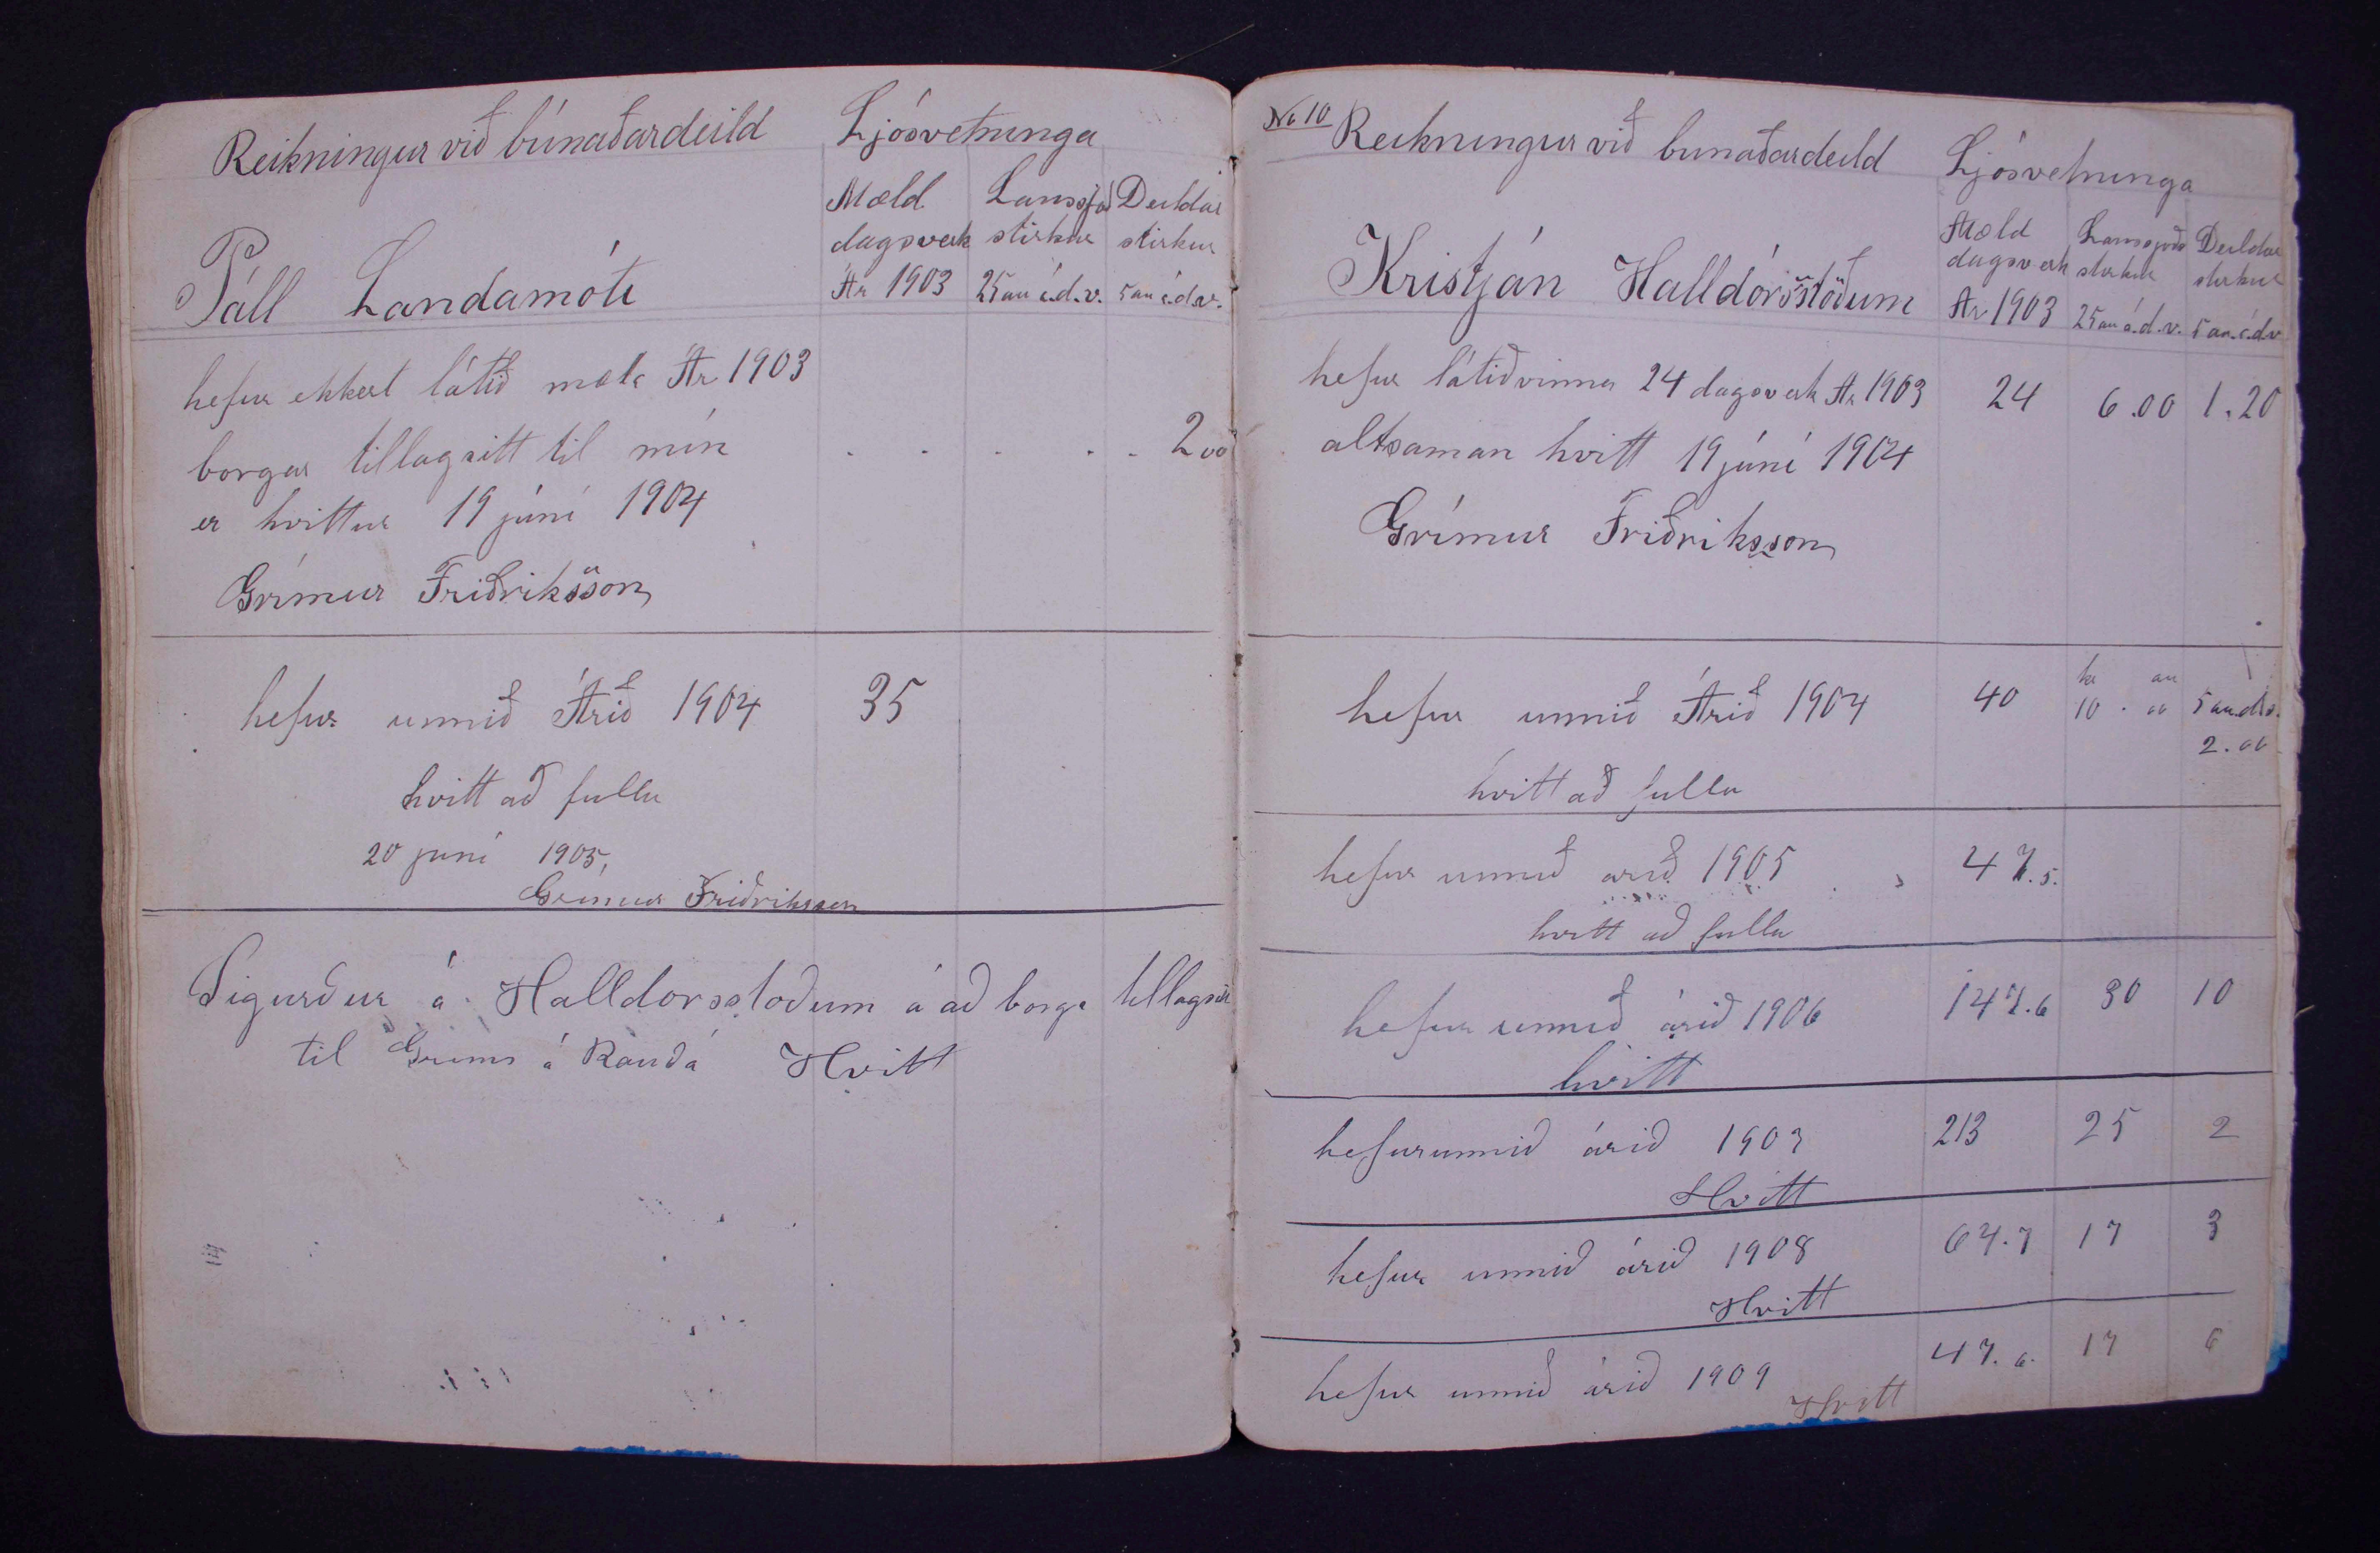 Reikningur við búnaðardeild Ljósvetninga
Mæld Lanssjóð Deildar
dagsverk stirkur stirkur
Ár 1903 25 au á.d.v. 5 au á.d.v.
Páll Landamóti
hefur ekkert látið mæla Ár 1903
borgar tillag sitt til mín . . . . . 2 00
er hvittur 19 júní 1904
Grímur Friðriksson
hefur unnið Árið 1904 35
hvitt að fullu
20 juní 1905,
Grímur Friðriksson
Sigurður á Halldorsstoðum á að borga tillag sitt
til Gríms á Rauðá Hvitt
No 10 Reikningur við bunaðardeild Ljósvetninga
Mæld Lanssjoðs Deildar
dagsverk stirkur stirkur
Ár 1903 25 au á.d.v. 5 au á.d.v
Kristján Halldórsstöðum
hefur látið vinna 24 dagsverk Ár 1903 24 6.00 1.20
altsaman hvitt 19 júní 1904
Grímur Friðriksson
kr au
hefur unnið Árið 1904 40 10 . 00 5 au.d.v.
2.00
hvitt að fullu
hefur unnið arið 1905 47.5.
hvitt að fullu
hefur unnið árið 1906 147.6 30 10
hvitt
hefur unnið árið 1907 213 25 2
Hvitt
hefur unnið árið 1908 64.7 17 3
Hvitt
hefur unnið árið 1909 47.6. 17 6
Hvitt